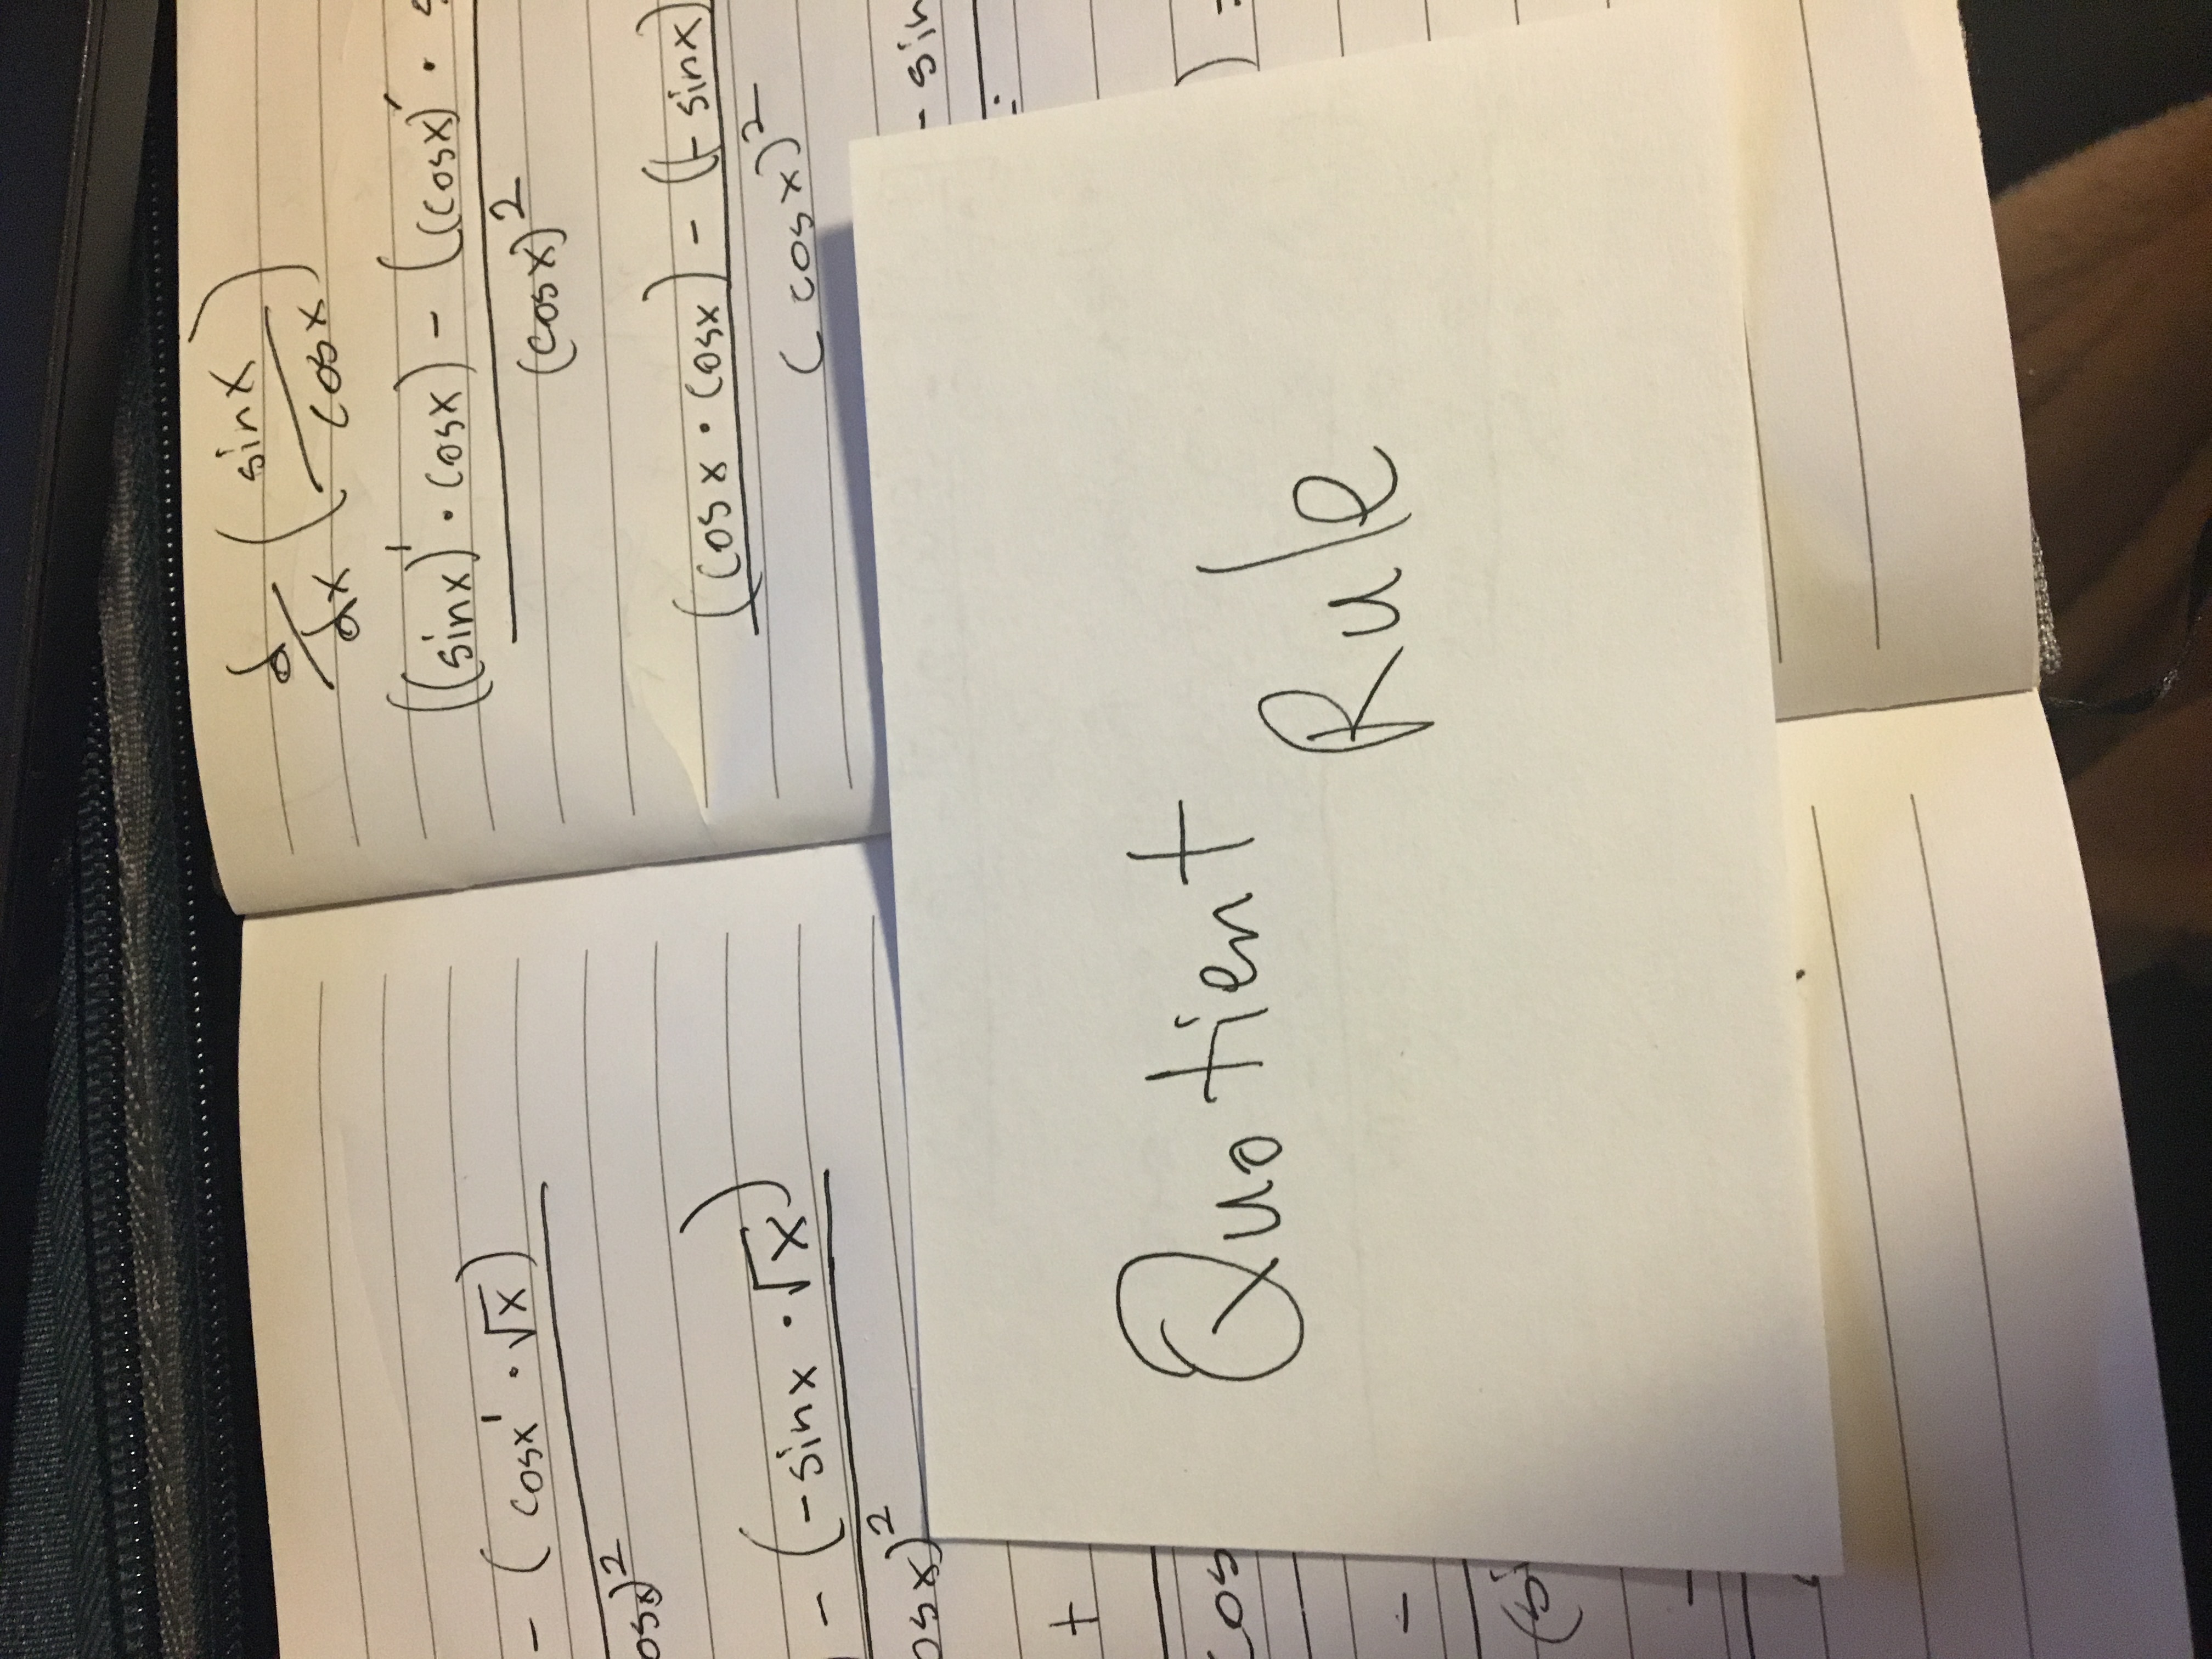 - (cosx' · √x)
osx)²
) - (-sinx · √x)
osx)²
+
cos
-
(si
-
d/dx (sinx/cosx)
((sinx)' · cosx) - ((cosx)' · s
(cosx)²
(cosx · cosx) - (-sinx)
(cosx)²
- sin
) =
Quotient
Rule